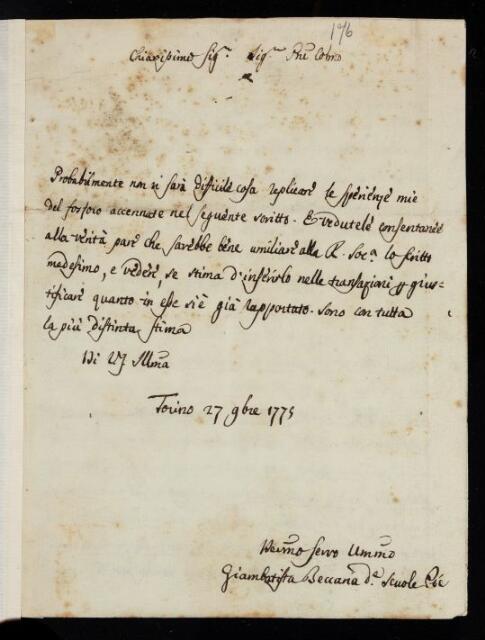 196
Chiarissimo Sig.r Sig.r
Probabilmente non vi sarà difficile cosa replicare le sperienze mie
del fosforo accennate nel seguente scritto. E vedutele consentanee
alla verità pare che sarebbe bene umiliare alla R. Soc.a lo scritto
medesimo, e vedere, se stima d'inserirlo nelle transazioni p gius-
tificare quanto in esse si è già rapportato. Sono con tutta
la più distinta stima
Di VS Illma
Torino 27 9bre 1775
Servo Ummo
Giambatista Beccaria d.e Scuole Pie